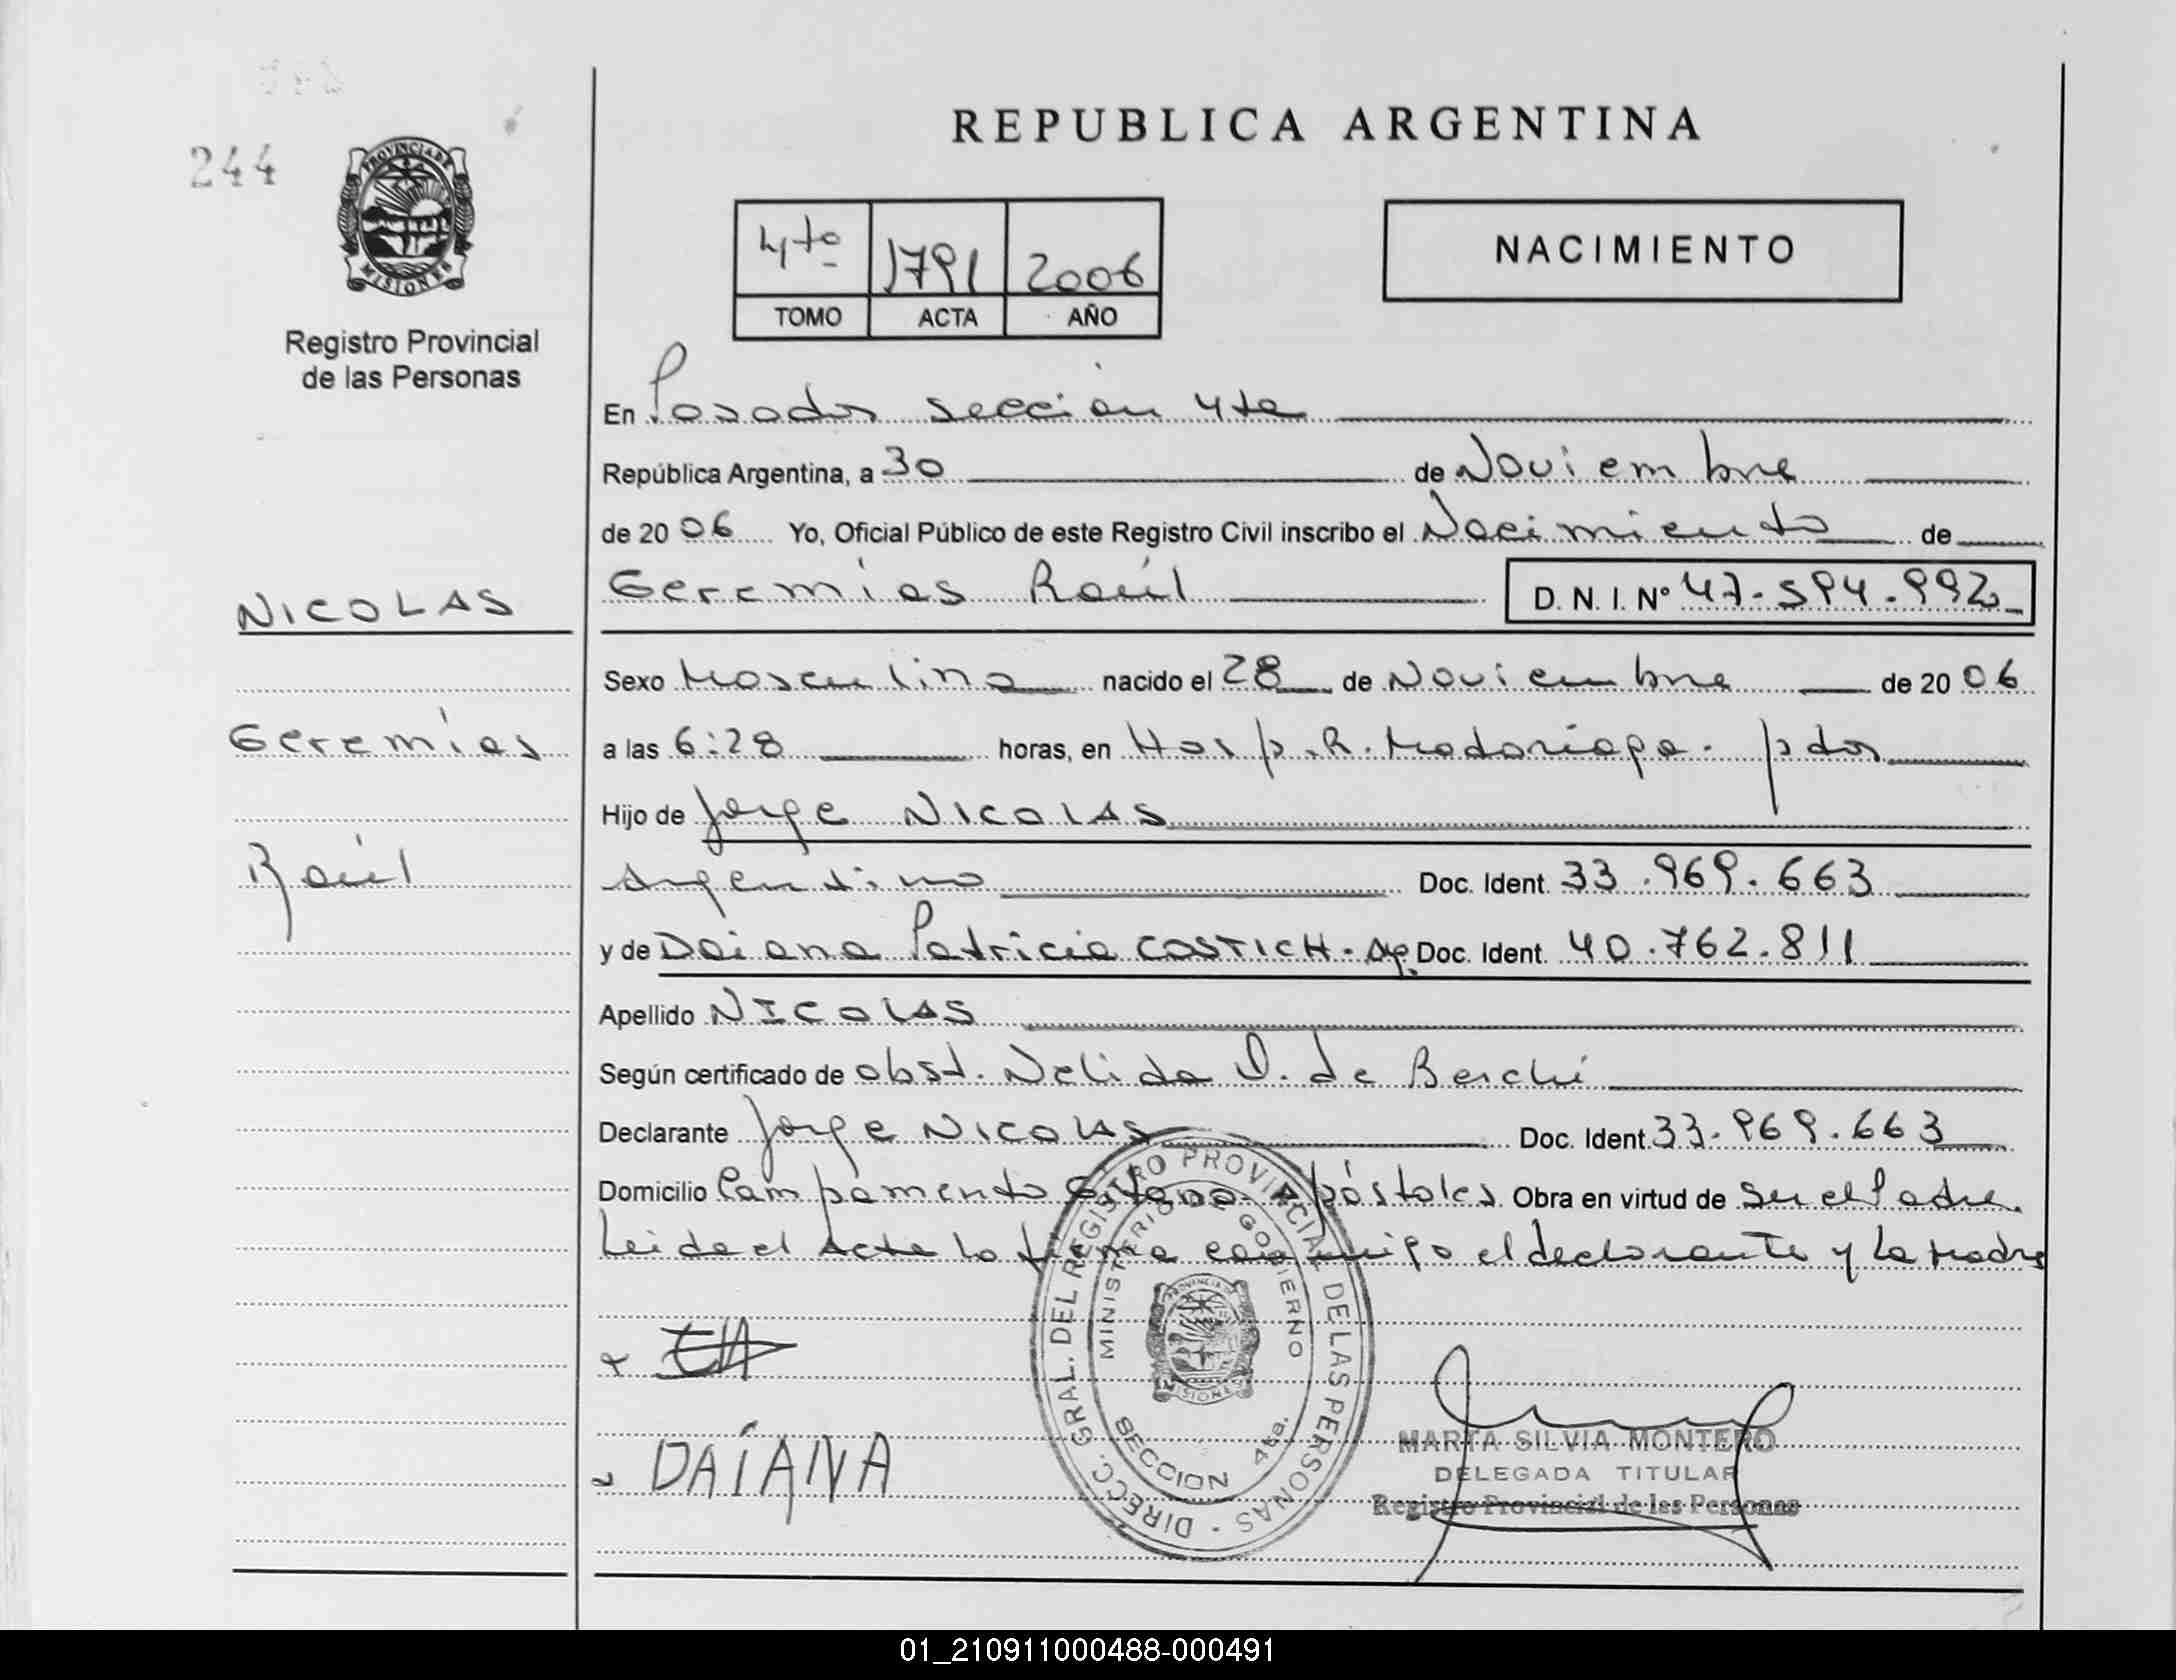 244
PROVINCIA DE
MISIONES
Registro Provincial
de las Personas
REPUBLICA ARGENTINA
4to 1791 2006
TOMO ACTA AÑO
NACIMIENTO
En Posadas sección 4ta
República Argentina, a 30 de Noviembre
de 2006 Yo, Oficial Público de este Registro Civil inscribo el Nacimiento de
NICOLAS
Geremías Raúl D. N. I. Nº 47.594.992
Sexo Masculino nacido el 28 de Noviembre de 2006
Geremías
a las 6:28 horas, en Hosp. R. Madariaga. pdas
Hijo de Jorge NICOLAS
Raúl
Argentino Doc. Ident. 33.969.663
y de Daiana Patricia COSTICH. Ag. Doc. Ident. 40.762.811
Apellido NICOLAS
Según certificado de obst. Nelida D. de Berchi
Declarante Jorge NICOLAS Doc. Ident. 33.969.663
Domicilio Campamento Gitano. Apóstoles Obra en virtud de Ser el Padre
Leida el Acta la firma conmigo el declarante y la Madre
DIRECC. GRAL. DEL REGISTRO PROVINCIAL DE LAS PERSONAS
MINISTERIO DE GOBIERNO
PROVINCIA DE
MISIONES
SECCION 4ta.
DAÍANA
MARTA SILVIA MONTERO
DELEGADA TITULAR
Registro Provincial de las Personas
01_210911000488-000491